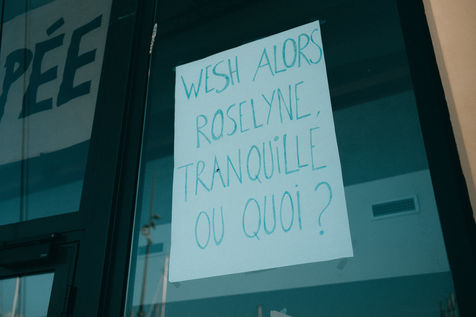 PÉE
WESH ALORS
ROSELYNE,
TRANQUILLE
OU QUOI ?